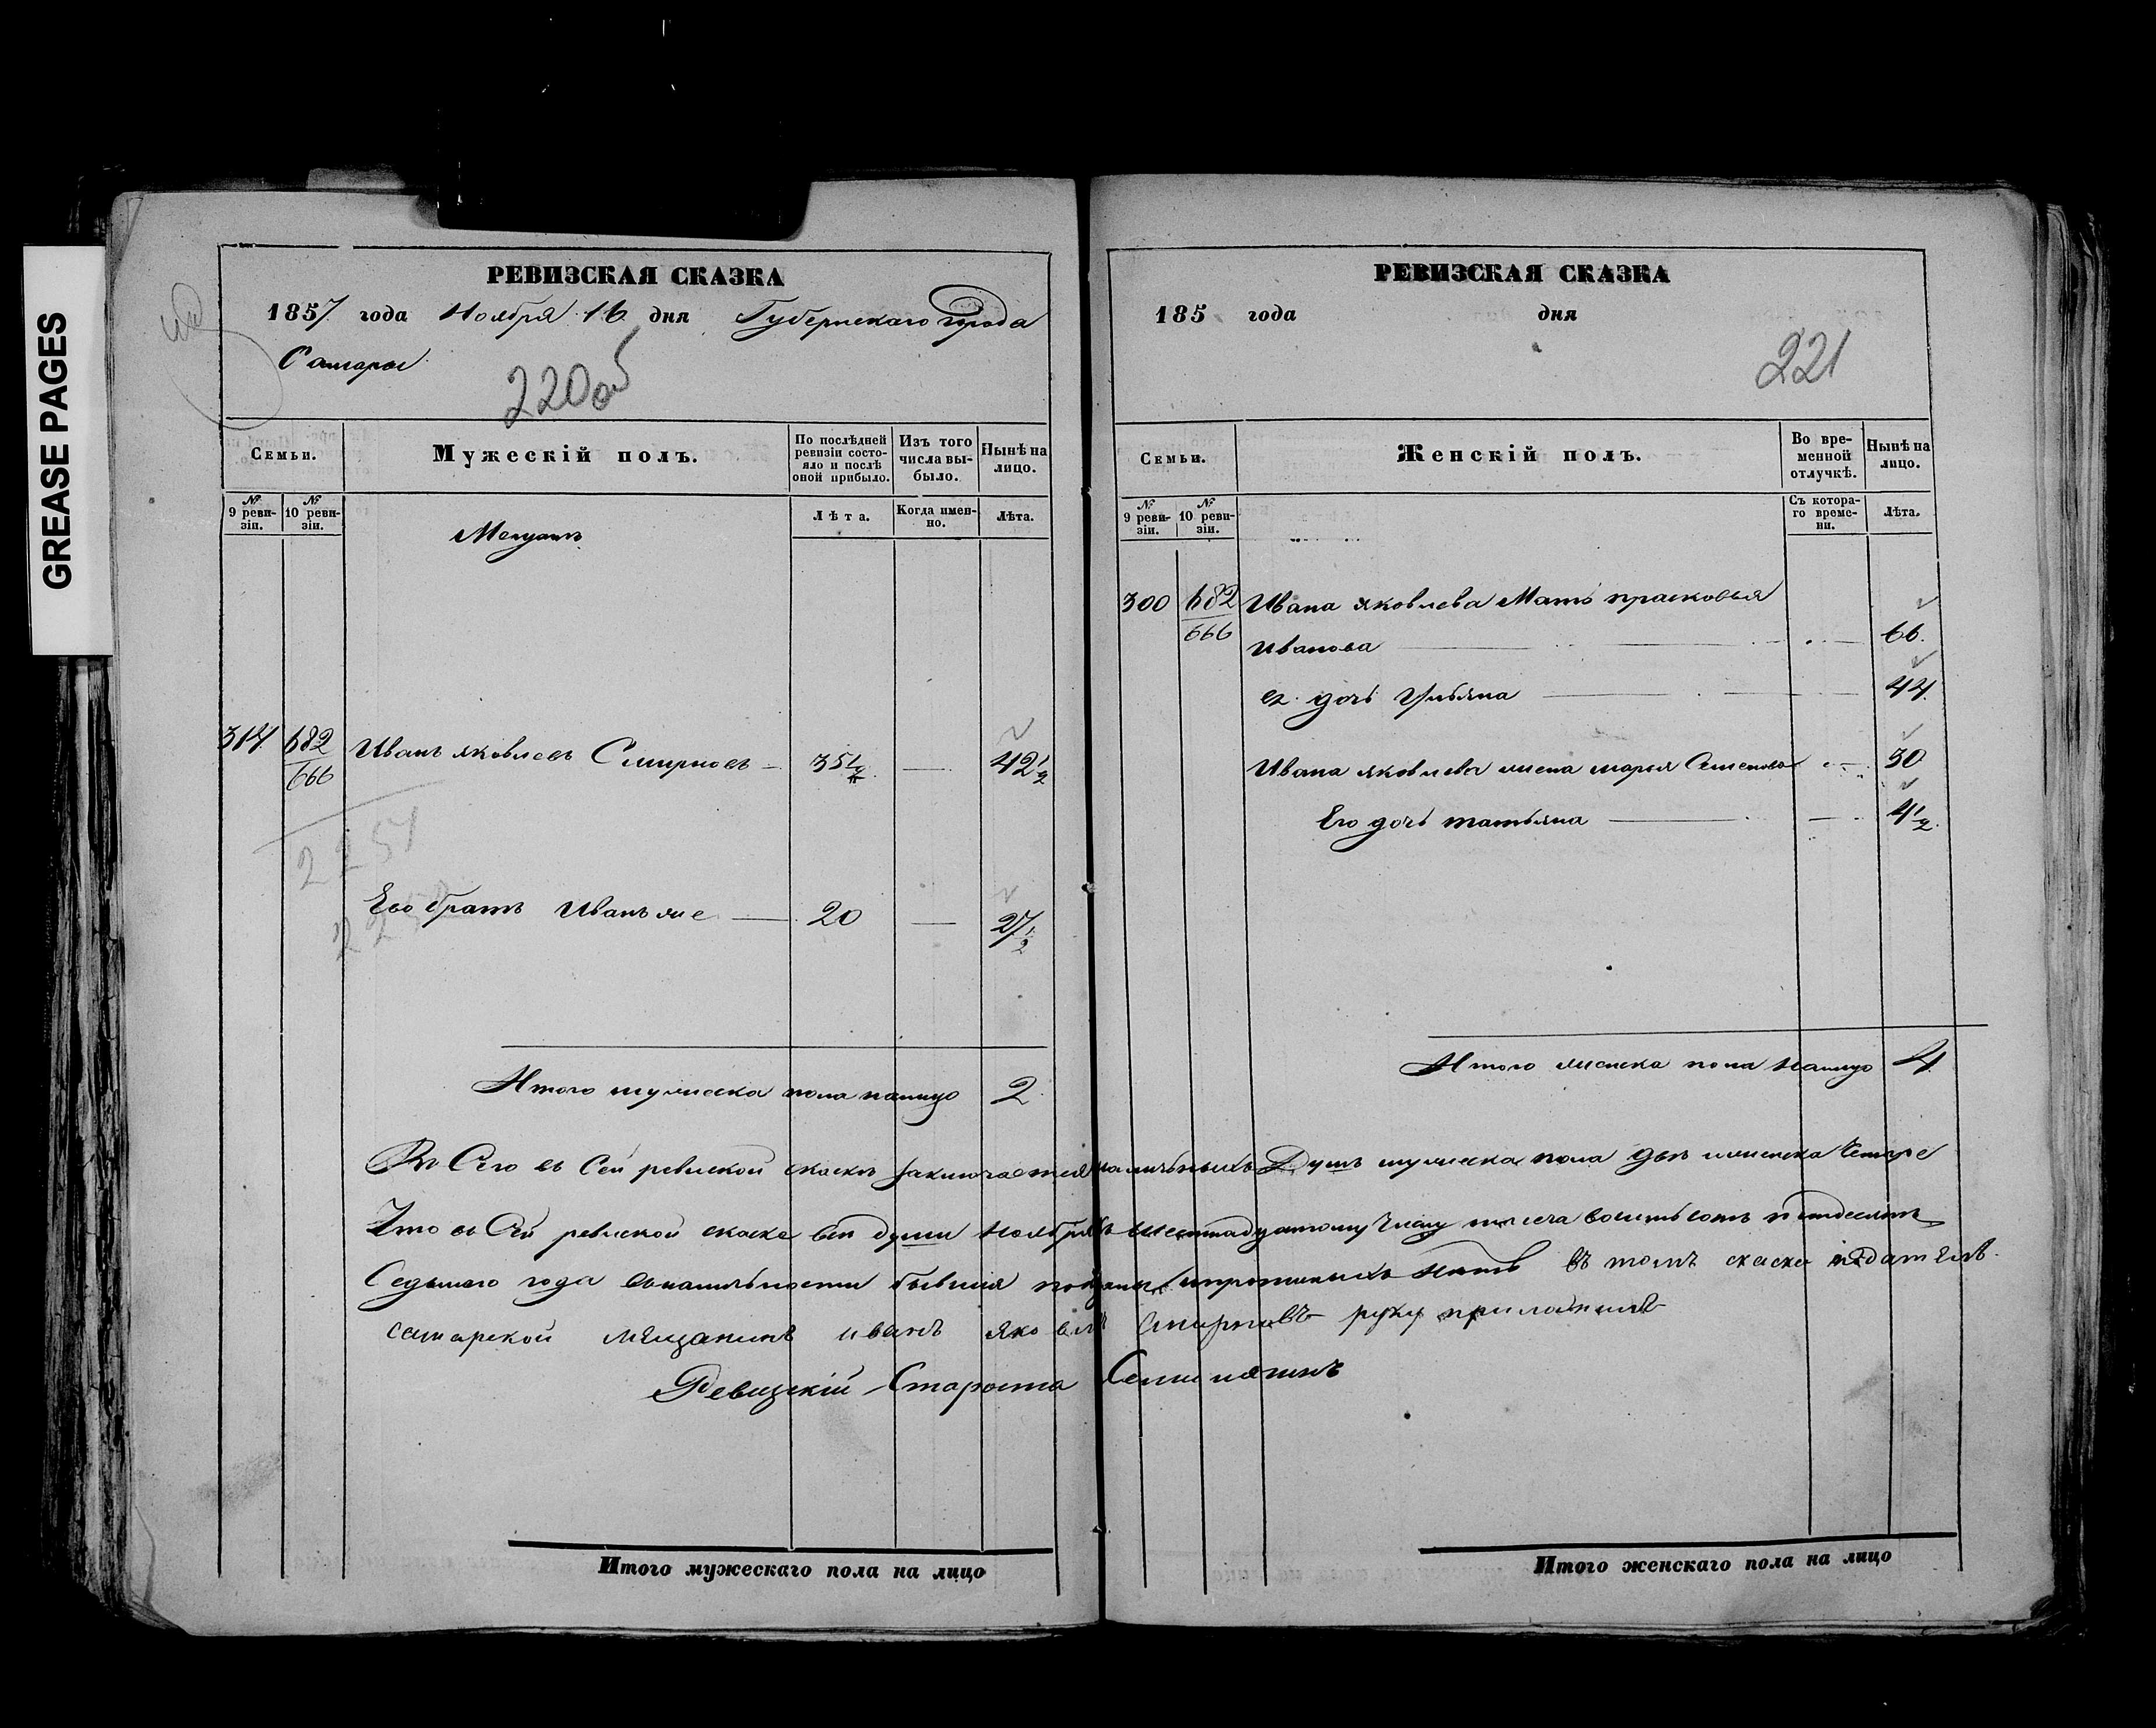 GREASE PAGES
РЕВИЗСКАЯ СКАЗКА
1857 года Ноября 16 дня Губернскаго города
Самары
220 об
Семьи.
Мужескій полъ.
По послѣдней ревизіи состояло и послѣ оной прибыло.
Изъ того числа выбыло.
Нынѣ на лицо.
№ 9 ревизіи.
№ 10 ревизіи.
Лѣта.
Когда именно.
Лѣта.
Мещанъ
314 682/666 Иванъ яковлевъ Смирновъ 35 1/2 — 42 1/2
2251
Его братъ Иванъ же — 20 — 27 1/2
Итого мужеска пола налицо 2
РЕВИЗСКАЯ СКАЗКА
185 года дня
221
Семьи.
Женскій полъ.
Во временной отлучкѣ.
Нынѣ на лицо.
№ 9 ревизіи.
№ 10 ревизіи.
Съ котораго времени.
Лѣта.
300 682/666 Ивана яковлева Мать прасковья
Иванова — 66
ея дочь Ульяна — 44
Ивана яковлева жена марья Семенова — 30
Его дочь татьяна — 4 1/2
Итого женска пола налицо 4
Въ Сего въ Сей ревиской скаске заключается наличныхъ Душъ мужеска пола две женска Четыре
Что въ Сей ревиской скаске все души Ноября къ шестнадцатому Числу тысеча восемьсотъ пятдесятъ
Седьмаго года вналичности бывшия показаны прописныхъ нетъ въ томъ скаско падатель
самарской мещанинъ иванъ яковлевъ Смирновъ руку приложилъ
Ревизскій Староста
Итого мужескаго пола на лицо
Итого женскаго пола на лицо